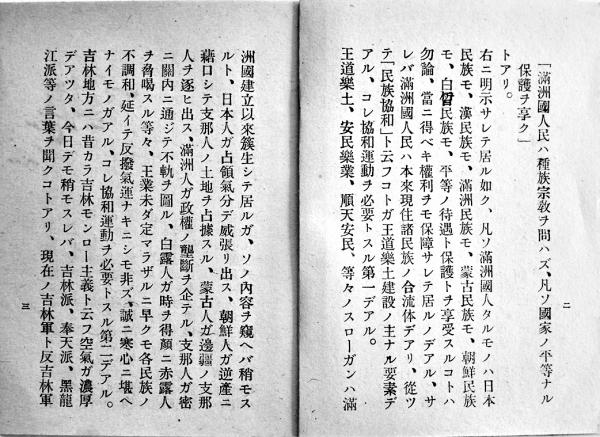 「滿洲國人民ハ種族宗敎ヲ問ハズ、凡ソ國家ノ平等ナル
保護ヲ享ク」
トアリ。
右ニ明示サレテ居ル如ク、凡ソ滿洲國人タルモノハ日本
民族モ、漢民族モ、滿洲民族モ、蒙古民族モ、朝鮮民族
モ、白晳民族モ、平等ノ待遇ト保護トヲ享受スルコトハ
勿論、當ニ得ベキ權利ヲモ保障サレテ居ルノデアル、サ
レバ滿洲國人民ハ本來現住諸民族ノ合流体デアリ、從ツ
テ「民族協和」ト云フコトガ王道樂土建設ノ主ナル要素デ
アル、コレ協和運動ヲ必要トスル第一デアル。
王道樂土、安民樂業、順天安民、等々ノスローガンハ滿
二
洲國建立以來簇生シテ居ルガ、ソノ內容ヲ窺ヘバ稍モス
ルト、日本人ガ占領氣分デ威張リ出ス、朝鮮人ガ逆產ニ
藉口シテ支那人ノ土地ヲ占據スル、蒙古人ガ邊疆ノ支那
人ヲ逐ヒ出ス、滿洲人ガ政權ノ壟斷ヲ企テル、支那人ガ密
ニ關內ニ通ジテ不軌ヲ圖ル、白露人ガ時ヲ得顏ニ赤露人
ヲ脅喝スル等々、王業未ダ定マラザルニ早クモ各民族ノ
不調和、延イテ反撥氣運ナキニシモ非ズ、誠ニ寒心ニ堪ヘ
ナイモノガアル、コレ協和運動ヲ必要トスル第二デアル。
吉林地方ニハ昔カラ吉林モンロー主義ト云フ空氣ガ濃厚
デアツタ、今日デモ稍モスレバ、吉林派、奉天派、黑龍
江派等ノ言葉ヲ聞クコトアリ、現在ノ吉林軍ト反吉林軍
三